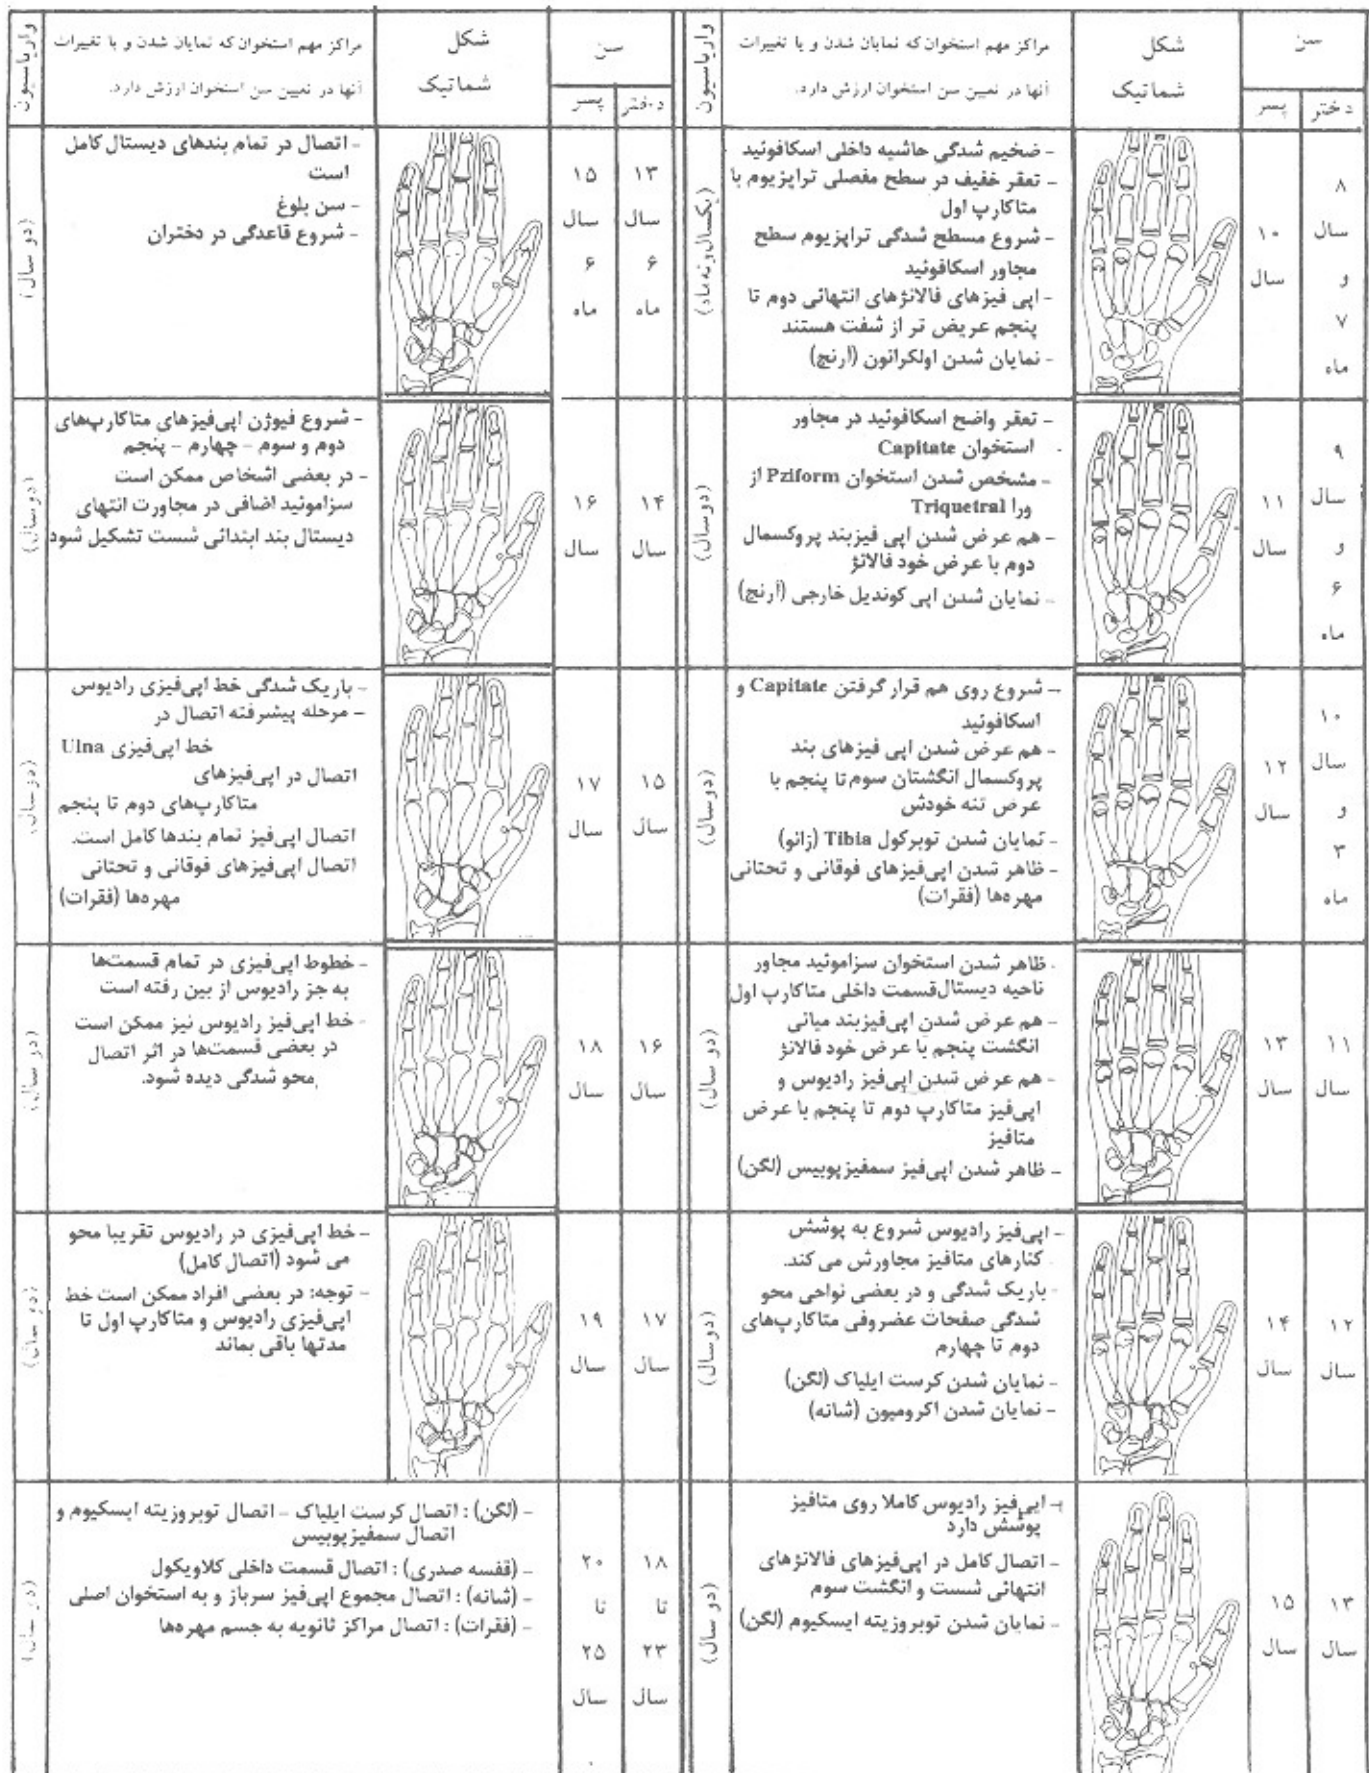 سن
دختر
پسر
شکل
شماتیک
مراکز مهم استخوان که نمایان شدن و یا تغییرات
آنها در تعیین سن استخوان ارزش دارد.
واریاسیون
۸
سال
و
۷
ماه
۱۰
سال
- ضخیم شدگی حاشیه داخلی اسکافوئید
- تعقر خفیف در سطح مفصلی تراپزیوم با
متاکارپ اول
- شروع مسطح شدگی تراپزیوم سطح
مجاور اسکافوئید
- اپی فیزهای فالانژهای انتهائی دوم تا
پنجم عریض تر از شفت هستند
- نمایان شدن اولکرانون (آرنج)
(یکسال و نه ماه)
۹
سال
و
۶
ماه
۱۱
سال
- تعقر واضح اسکافوئید در مجاور
استخوان Capitate
- مشخص شدن استخوان Pziform از
ورا Triquetral
- هم عرض شدن اپی فیزبند پروکسمال
دوم با عرض خود فالانژ
- نمایان شدن اپی کوندیل خارجی (آرنج)
(دوسال)
۱۰
سال
و
۳
ماه
۱۲
سال
- شروع روی هم قرار گرفتن Capitate و
اسکافوئید
- هم عرض شدن اپی فیزهای بند
پروکسمال انگشتان سوم تا پنجم با
عرض تنه خودش
- نمایان شدن توبرکول Tibia (زانو)
- ظاهر شدن اپی‌فیزهای فوقانی و تحتانی
مهره‌ها (فقرات)
(دوسال)
۱۱
سال
۱۳
سال
- ظاهر شدن استخوان سزاموئید مجاور
ناحیه دیستال قسمت داخلی متاکارپ اول
- هم عرض شدن اپی‌فیزبند میانی
انگشت پنجم با عرض خود فالانژ
- هم عرض شدن اپی‌فیز رادیوس و
اپی‌فیز متاکارپ دوم تا پنجم با عرض
متافیز
- ظاهر شدن اپی‌فیز سمفیزپوبیس (لگن)
(دو سال)
۱۲
سال
۱۴
سال
- اپی‌فیز رادیوس شروع به پوشش
کنارهای متافیز مجاورش می کند.
- باریک شدگی و در بعضی نواحی محو
شدگی صفحات غضروفی متاکارپ‌های
دوم تا چهارم
- نمایان شدن کرست ایلیاک (لگن)
- نمایان شدن اکرومیون (شانه)
(دوسال)
۱۳
سال
۱۵
سال
- اپی‌فیز رادیوس کاملا روی متافیز
پوشش دارد
- اتصال کامل در اپی‌فیزهای فالانژهای
انتهائی شست و انگشت سوم
- نمایان شدن توبروزیته ایسکیوم (لگن)
(دو سال)
سن
دختر
پسر
شکل
شماتیک
مراکز مهم استخوان که نمایان شدن و یا تغییرات
آنها در تعیین سن استخوان ارزش دارد.
واریاسیون
۱۳
سال
۶
ماه
۱۵
سال
۶
ماه
- اتصال در تمام بندهای دیستال کامل
است
- سن بلوغ
- شروع قاعدگی در دختران
(دو سال)
۱۴
سال
۱۶
سال
- شروع فیوژن اپی‌فیزهای متاکارپ‌های
دوم و سوم - چهارم - پنجم
- در بعضی اشخاص ممکن است
سزاموئید اضافی در مجاورت انتهای
دیستال بند ابتدائی شست تشکیل شود
(دوسال)
۱۵
سال
۱۷
سال
- باریک شدگی خط اپی‌فیزی رادیوس
- مرحله پیشرفته اتصال در
خط اپی‌فیزی Ulna
اتصال در اپی‌فیزهای
متاکارپ‌های دوم تا پنجم
اتصال اپی‌فیز تمام بندها کامل است.
اتصال اپی‌فیزهای فوقانی و تحتانی
مهره‌ها (فقرات)
(دوسال)
۱۶
سال
۱۸
سال
- خطوط اپی‌فیزی در تمام قسمت‌ها
به جز رادیوس از بین رفته است
- خط اپی‌فیز رادیوس نیز ممکن است
در بعضی قسمت‌ها در اثر اتصال
محو شدگی دیده شود.
(دو سال)
۱۷
سال
۱۹
سال
- خط اپی‌فیزی در رادیوس تقریبا محو
می شود (اتصال کامل)
- توجه: در بعضی افراد ممکن است خط
اپی‌فیزی رادیوس و متاکارپ اول تا
مدتها باقی بماند
(دو سال)
۱۸
تا
۲۳
سال
۲۰
تا
۲۵
سال
- (لگن) : اتصال کرست ایلیاک - اتصال توبروزیته ایسکیوم و
اتصال سمفیزپوبیس
- (قفسه صدری) : اتصال قسمت داخلی کلاویکول
- (شانه) : اتصال مجموع اپی‌فیز سرباز و به استخوان اصلی
- (فقرات) : اتصال مراکز ثانویه به جسم مهره‌ها
(دو سال)